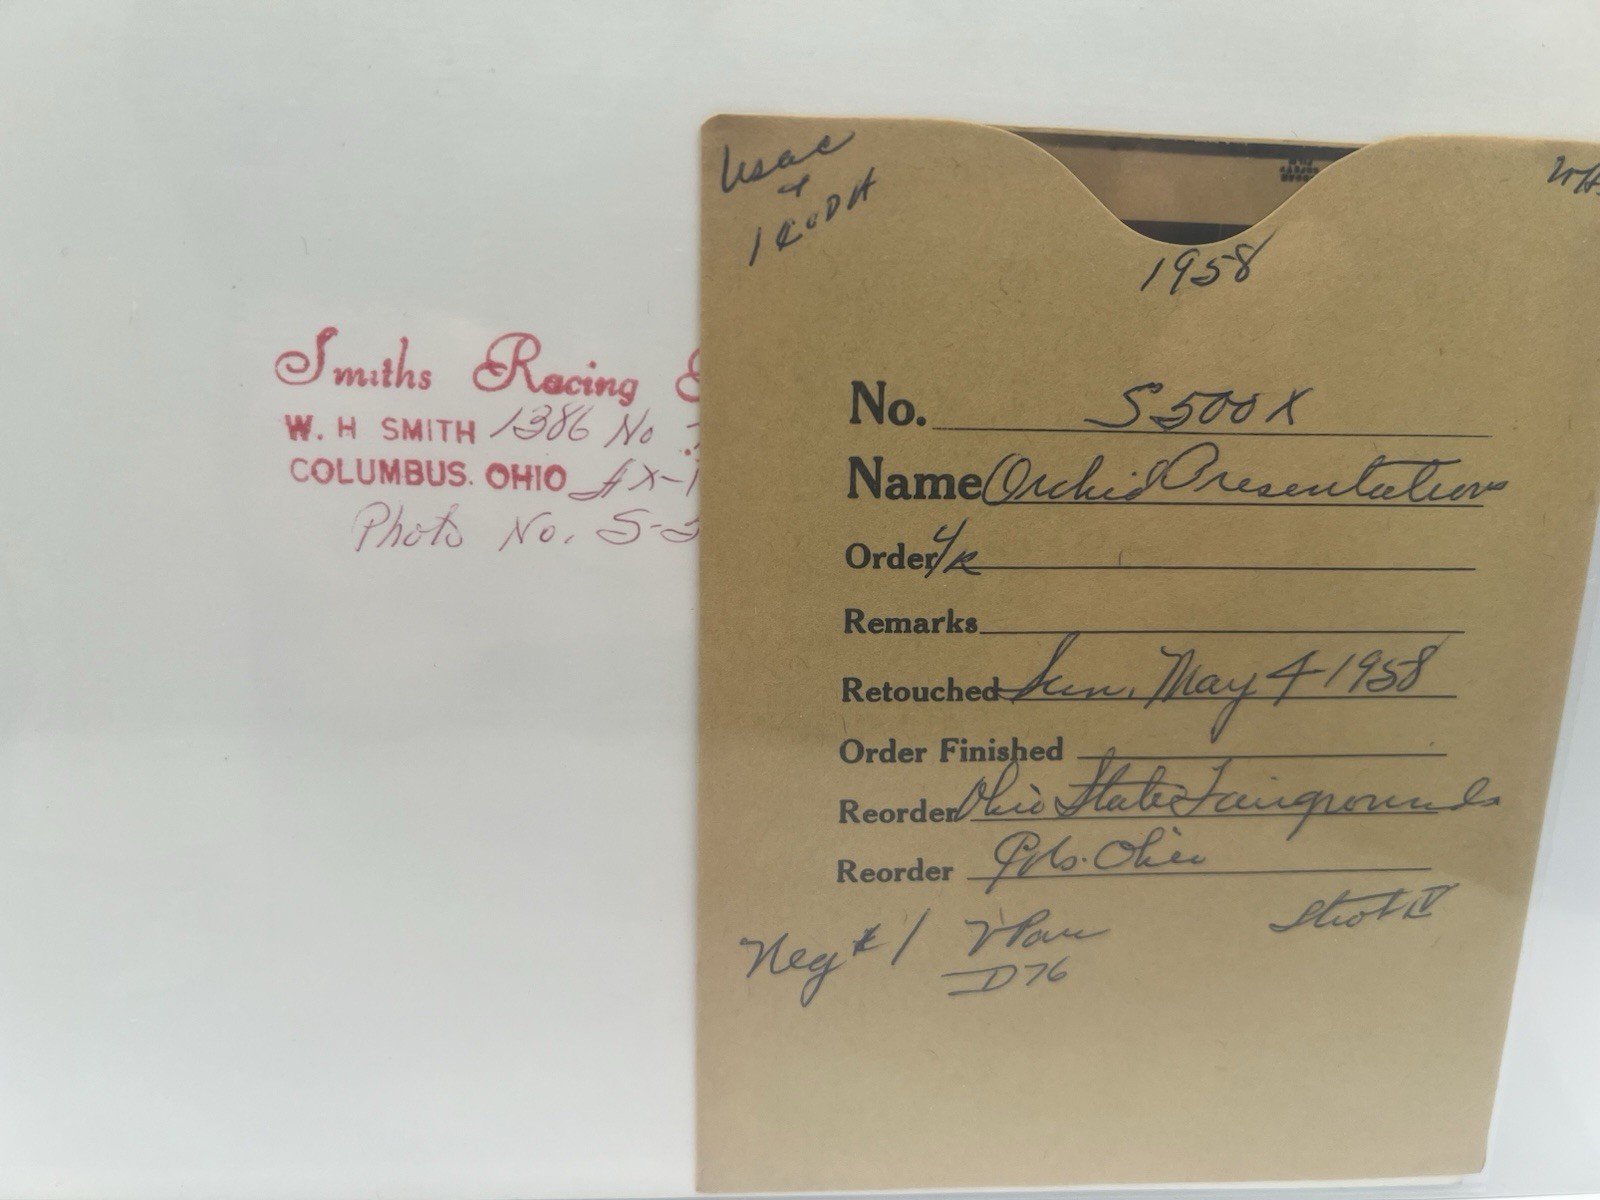 Smiths Racing
W. H SMITH 1386 No
COLUMBUS. OHIO AX-1
Photo No. S-5
Usac
+
WH
1958
No. S500X
Name Orchid Presentations
Order
Remarks
Retouched Sun. May 4 1958
Order Finished
Reorder Ohio State Fairgrounds
Reorder Cols. Ohio
Neg # 1 V Pan
D76